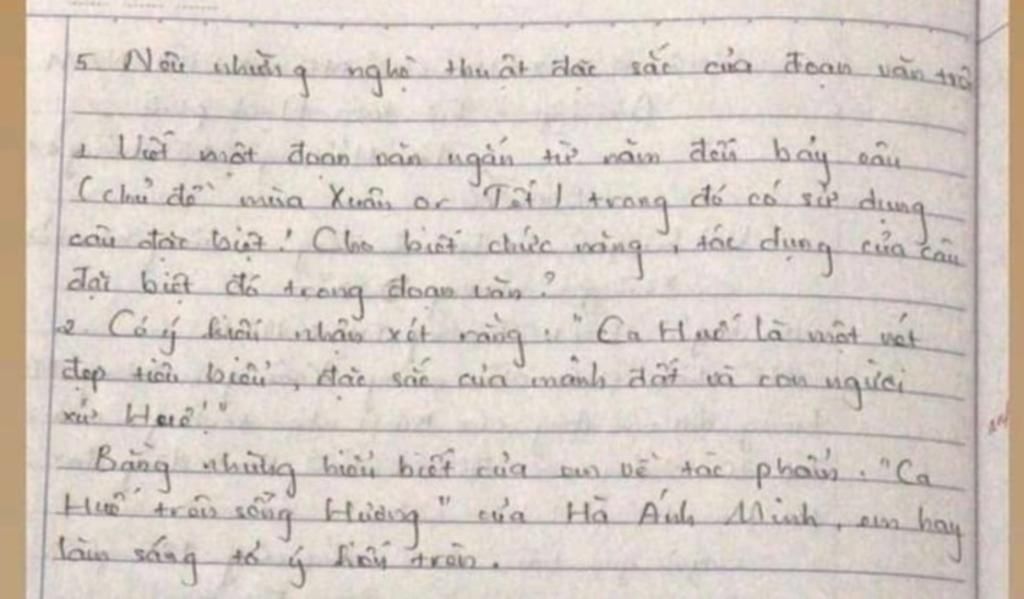 5. Nêu những nghệ thuật đặc sắc của đoạn văn trê
1. Viết một đoạn văn ngắn từ năm đến bảy câu
(chủ đề mùa Xuân or Tết) trong đó có sử dụng
câu đặc biệt! Cho biết chức năng, tác dụng của câu
đặc biệt đó trong đoạn văn?
2. Có ý kiến nhận xét rằng: "Ca Huế là một nét
đẹp tiêu biểu, đặc sắc của mảnh đất và con người
xứ Huế"
Bằng những hiểu biết của em về tác phẩm: "Ca
Huế trên sông Hương" của Hà Ánh Minh, em hãy
làm sáng tỏ ý kiến trên.